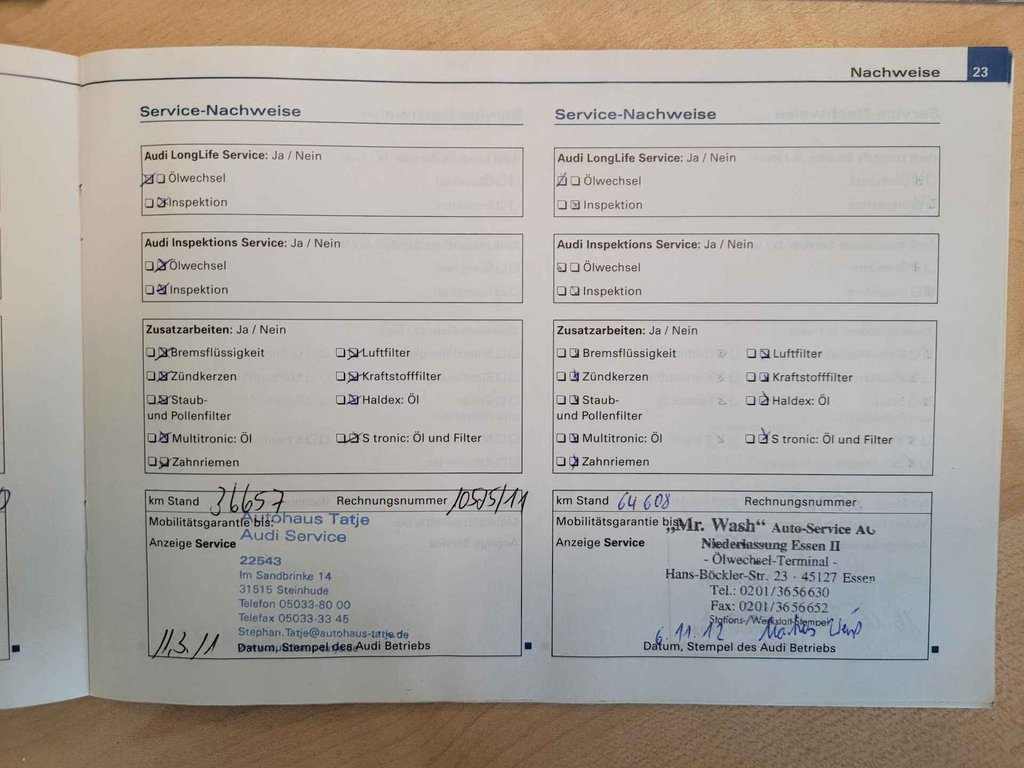 Nachweise 23
Service-Nachweise
Audi LongLife Service: Ja / Nein
Ölwechsel
Inspektion
Audi Inspektions Service: Ja / Nein
Ölwechsel
Inspektion
Zusatzarbeiten: Ja / Nein
Bremsflüssigkeit Luftfilter
Zündkerzen Kraftstofffilter
Staub- Haldex: Öl
und Pollenfilter
Multitronic: Öl S tronic: Öl und Filter
Zahnriemen
km Stand 36657 Rechnungsnummer
Mobilitätsgarantie bis:
Autohaus Tatje
Anzeige Service
Audi Service
22543
Im Sandbrinke 14
31515 Steinhude
Telefon 05033-80 00
Telefax 05033-33 45
Stephan.Tatje@autohaus-tatje.de
11.3.11
Datum, Stempel des Audi Betriebs
Service-Nachweise
Audi LongLife Service: Ja / Nein
Ölwechsel
Inspektion
Audi Inspektions Service: Ja / Nein
Ölwechsel
Inspektion
Zusatzarbeiten: Ja / Nein
Bremsflüssigkeit Luftfilter
Zündkerzen Kraftstofffilter
Staub- Haldex: Öl
und Pollenfilter
Multitronic: Öl S tronic: Öl und Filter
Zahnriemen
km Stand 64608 Rechnungsnummer
Mobilitätsgarantie bis:
„Mr. Wash“ Auto-Service AG
Anzeige Service
Niederlassung Essen II
- Ölwechsel-Terminal -
Hans-Böckler-Str. 23 · 45127 Essen
Tel.: 0201/3656630
Fax: 0201/3656652
Stations-/Werkstatt-Stempel
6.11.12
Datum, Stempel des Audi Betriebs